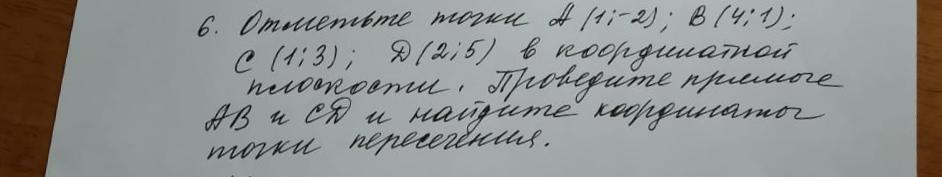 6. Отметьте точки А (1;-2); В (4;1);
С (1;3); D (2;5) в координатной
плоскости. Проведите прямые
АВ и СD и найдите координаты
точки пересечения.